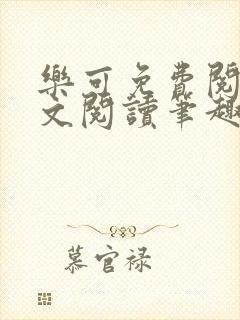 樂可免費閱
文閱讀筆趣
慕官禄